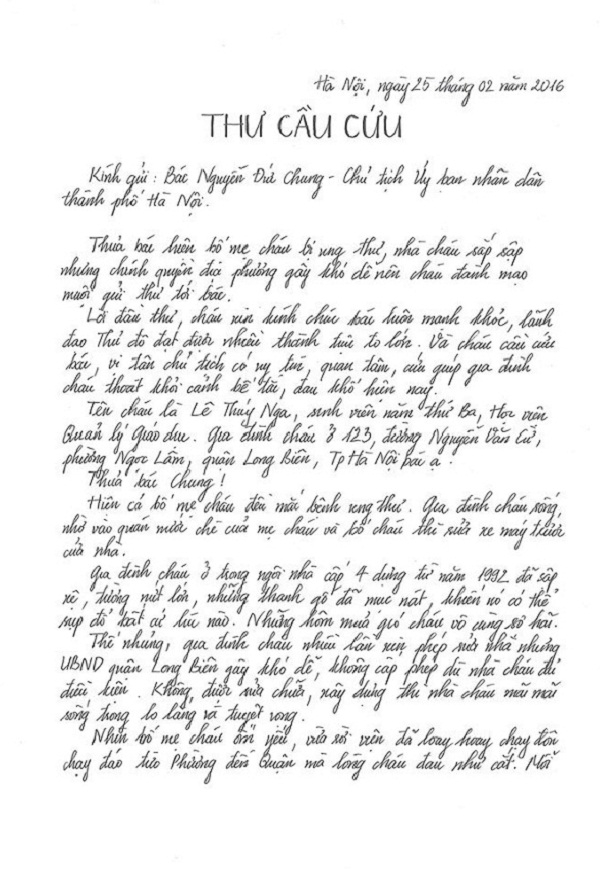 Hà Nội, ngày 25 tháng 02 năm 2016
THƯ CẦU CỨU
Kính gửi: Bác Nguyễn Đức Chung - Chủ tịch Ủy ban nhân dân
thành phố Hà Nội.
Thưa bác hiện bố mẹ cháu bị ung thư, nhà cháu sắp sập
nhưng chính quyền địa phương gây khó dễ nên cháu đánh mạo
muội gửi thư tới bác.
Lời đầu thư, cháu xin kính chúc bác luôn mạnh khỏe, lãnh
đạo Thủ đô đạt được nhiều thành tựu to lớn. Và cháu cầu cứu
bác, vị tân chủ tịch có uy tín, quan tâm, cứu giúp gia đình
cháu thoát khỏi cảnh bế tắc, đau khổ hiện nay.
Tên cháu là Lê Thúy Nga, sinh viên năm thứ Ba, Học viện
Quản lý Giáo dục. Gia đình cháu ở 123, đường Nguyễn Văn Cừ,
phường Ngọc Lâm, quận Long Biên, Tp Hà Nội bác ạ.
Thưa bác Chung!
Hiện cả bố mẹ cháu đều mắc bệnh ung thư. Gia đình cháu sống,
nhờ vào quán nước chè của mẹ cháu và bố cháu thì sửa xe máy trước
cửa nhà.
Gia đình cháu ở trong ngôi nhà cấp 4 dựng từ năm 1992 đã sập
xệ, tường nứt lớn, những thanh gỗ đã mục nát, khiến nó có thể
sụp đổ bất cứ lúc nào. Những hôm mưa gió cháu vô cùng sợ hãi.
Thế nhưng, gia đình cháu nhiều lần xin phép sửa nhà nhưng
UBND quận Long Biên gây khó dễ, không cấp phép dù nhà cháu đủ
điều kiện. Không được sửa chữa, xây dựng thì nhà cháu mãi mãi
sống trong lo lắng và tuyệt vọng.
Nhìn bố mẹ cháu ốm yếu, vừa rời viện đã loay hoay chạy đôn
chạy đáo từ Phường đến Quận mà lòng cháu đau như cắt. Mỗi